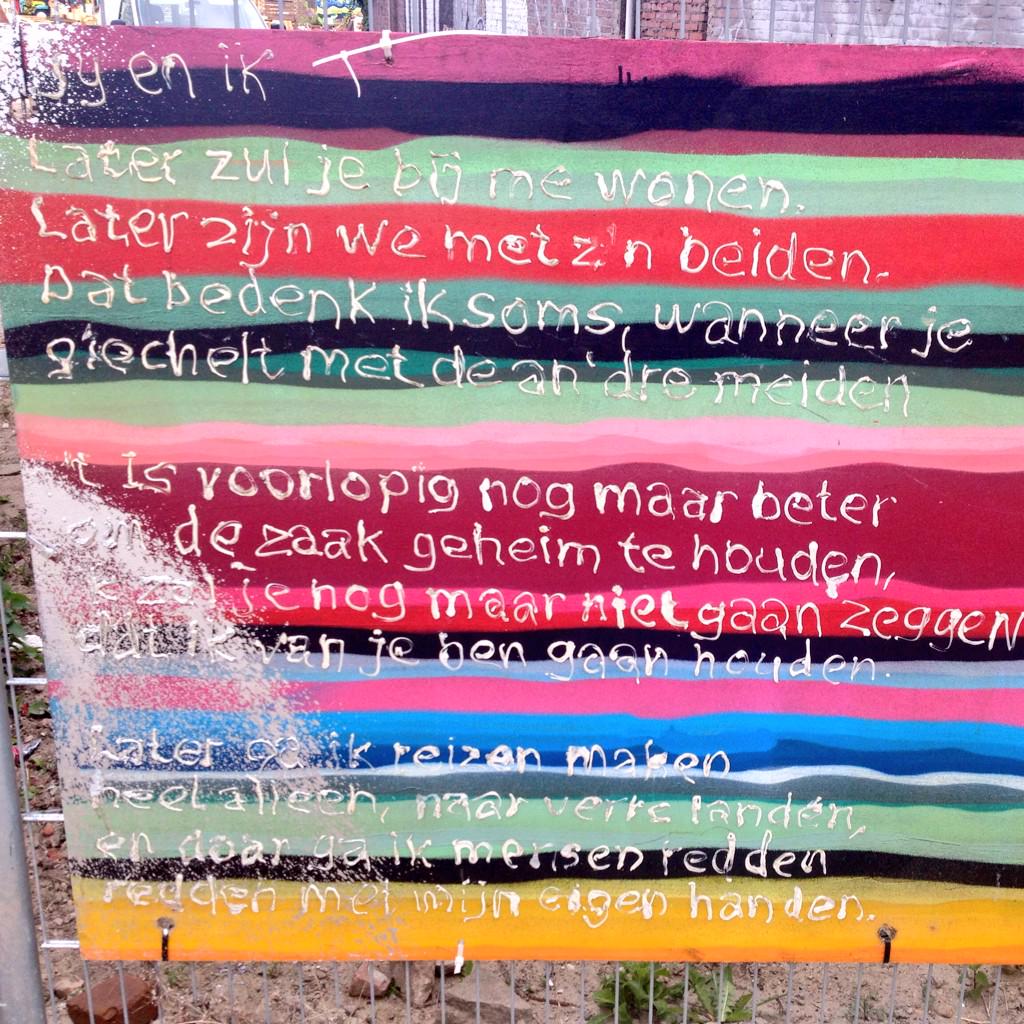 Jij en ik
Later zul je bij me wonen.
Later zijn we met z'n beiden.
Dat bedenk ik soms, wanneer je
giechelt met de an'dre meiden
't Is voorlopig nog maar beter
om de zaak geheim te houden,
'k zal je nog maar niet gaan zeggen
dat ik van je ben gaan houden.
Later ga ik reizen maken
heel alleen, naar verre landen,
en daar ga ik mensen redden
redden met mijn eigen handen.